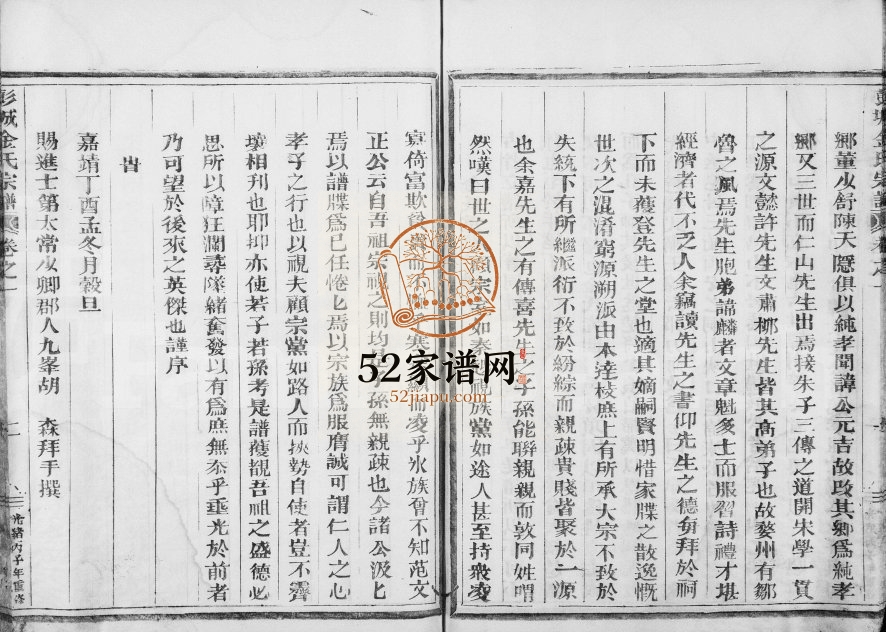 鄉董少舒陳天隱俱以純孝聞諱公元吉故改其鄉爲純孝
鄉又三世而仁山先生出焉接朱子三傳之道開宋學一貫
之源文懿許先生文肅柳先生皆其高弟子也故婺州有鄒
魯之風焉先生胞弟諱麟者文章魁多士而服習詩禮才堪
經濟者代不乏人余竊讀先生之書仰先生之德每拜於祠
下而未獲登先生之堂也適其嫡嗣賢明惜家牒之散逸慨
世次之混淆窮源溯派由本達枝庶上有所承大宗不致於
失統下有所繼派衍不致於紛綜而親疎貴賤皆聚於一源
也余嘉先生之有傳喜先生之子孫能聯親親而敦同姓喟
然嘆曰世之人視宗如秦視族黨如途人甚至持衆凌
寡倚富欺貧而凌乎氷族曾不知范文
正公云自吾祖宗視之則均是子孫無親疎也今諸公汲匕
焉以譜牒爲已任惓匕焉以宗族爲服膺誠可謂仁人之心
孝子之行也以視夫顧宗黨如路人而挾勢自使者豈不霄
壤相刋也耶抑亦使若子若孫考是譜獲覩吾祖之盛德必
思所以障狂瀾尋墜緒奮發以有爲庶無忝乎垂光於前者
乃可望於後來之英傑也謹序
旹
嘉靖丁酉孟冬月穀旦
賜進士第太常少卿郡人九峯胡　森拜手撰
彭城金氏宗譜 卷之一
光緒丙子年重修
52家谱网
52jiapu.com